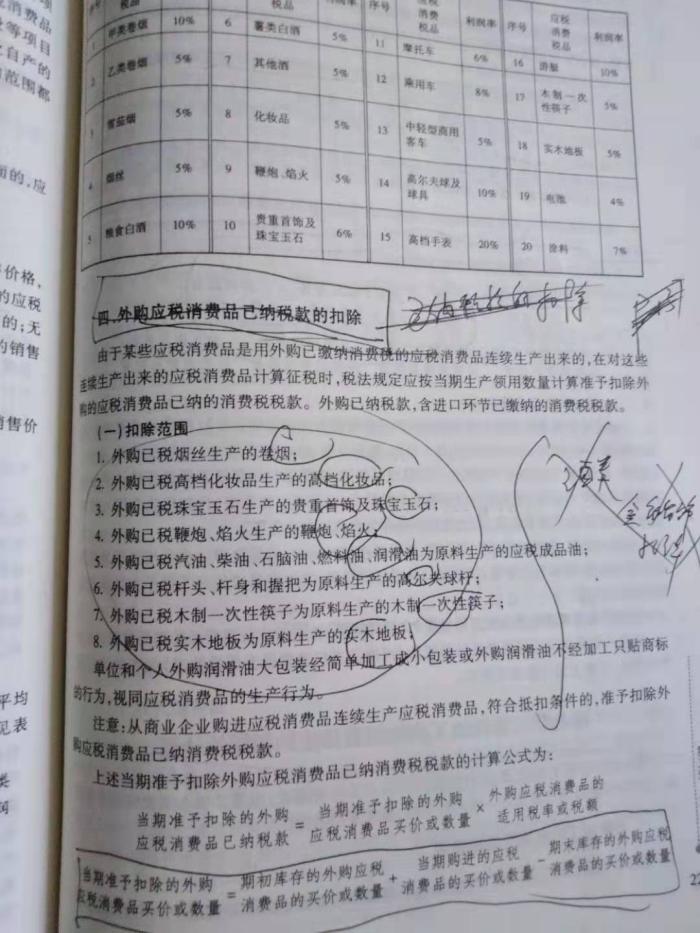 消费品
等项目
自产的
范围都
的,应
价格,
的应税
的;无
的销售
售价
平均
见表
类
税品 税品 利润率 序号 应税消费税品 利润率 序号 应税消费税品 利润率
甲类卷烟 10% 6 薯类白酒 5% 11 摩托车 6% 16 游艇 10%
2 乙类卷烟 5% 7 其他酒 5% 12 乘用车 8% 17 木制一次性筷子 5%
3 雪茄烟 5% 8 化妆品 5% 13 中轻型商用客车 5% 18 实木地板 5%
4 烟丝 5% 9 鞭炮、焰火 5% 14 高尔夫球及球具 10% 19 电池 4%
5 粮食白酒 10% 10 贵重首饰及珠宝玉石 6% 15 高档手表 20% 20 涂料 7%
四、外购应税消费品已纳税款的扣除
由于某些应税消费品是用外购已缴纳消费税的应税消费品连续生产出来的,在对这些
连续生产出来的应税消费品计算征税时,税法规定应按当期生产领用数量计算准予扣除外
购的应税消费品已纳的消费税税款。外购已纳税款,含进口环节已缴纳的消费税税款。
(一)扣除范围
1. 外购已税烟丝生产的卷烟;
2. 外购已税高档化妆品生产的高档化妆品;
3. 外购已税珠宝玉石生产的贵重首饰及珠宝玉石;
4. 外购已税鞭炮、焰火生产的鞭炮、焰火;
5. 外购已税汽油、柴油、石脑油、燃料油、润滑油为原料生产的应税成品油;
6. 外购已税杆头、杆身和握把为原料生产的高尔夫球杆;
7. 外购已税木制一次性筷子为原料生产的木制一次性筷子;
8. 外购已税实木地板为原料生产的实木地板;
单位和个人外购润滑油大包装经简单加工成小包装或外购润滑油不经加工只贴商标
的行为,视同应税消费品的生产行为。
注意:从商业企业购进应税消费品连续生产应税消费品,符合抵扣条件的,准予扣除外
购应税消费品已纳消费税税款。
上述当期准予扣除外购应税消费品已纳消费税税款的计算公式为:
当期准予扣除的外购应税消费品已纳税款 = 当期准予扣除的外购应税消费品买价或数量 × 外购应税消费品的适用税率或税额
当期准予扣除的外购应税消费品买价或数量 = 期初库存的外购应税消费品的买价或数量 + 当期购进的应税消费品的买价或数量 - 期末库存的外购应税消费品的买价或数量